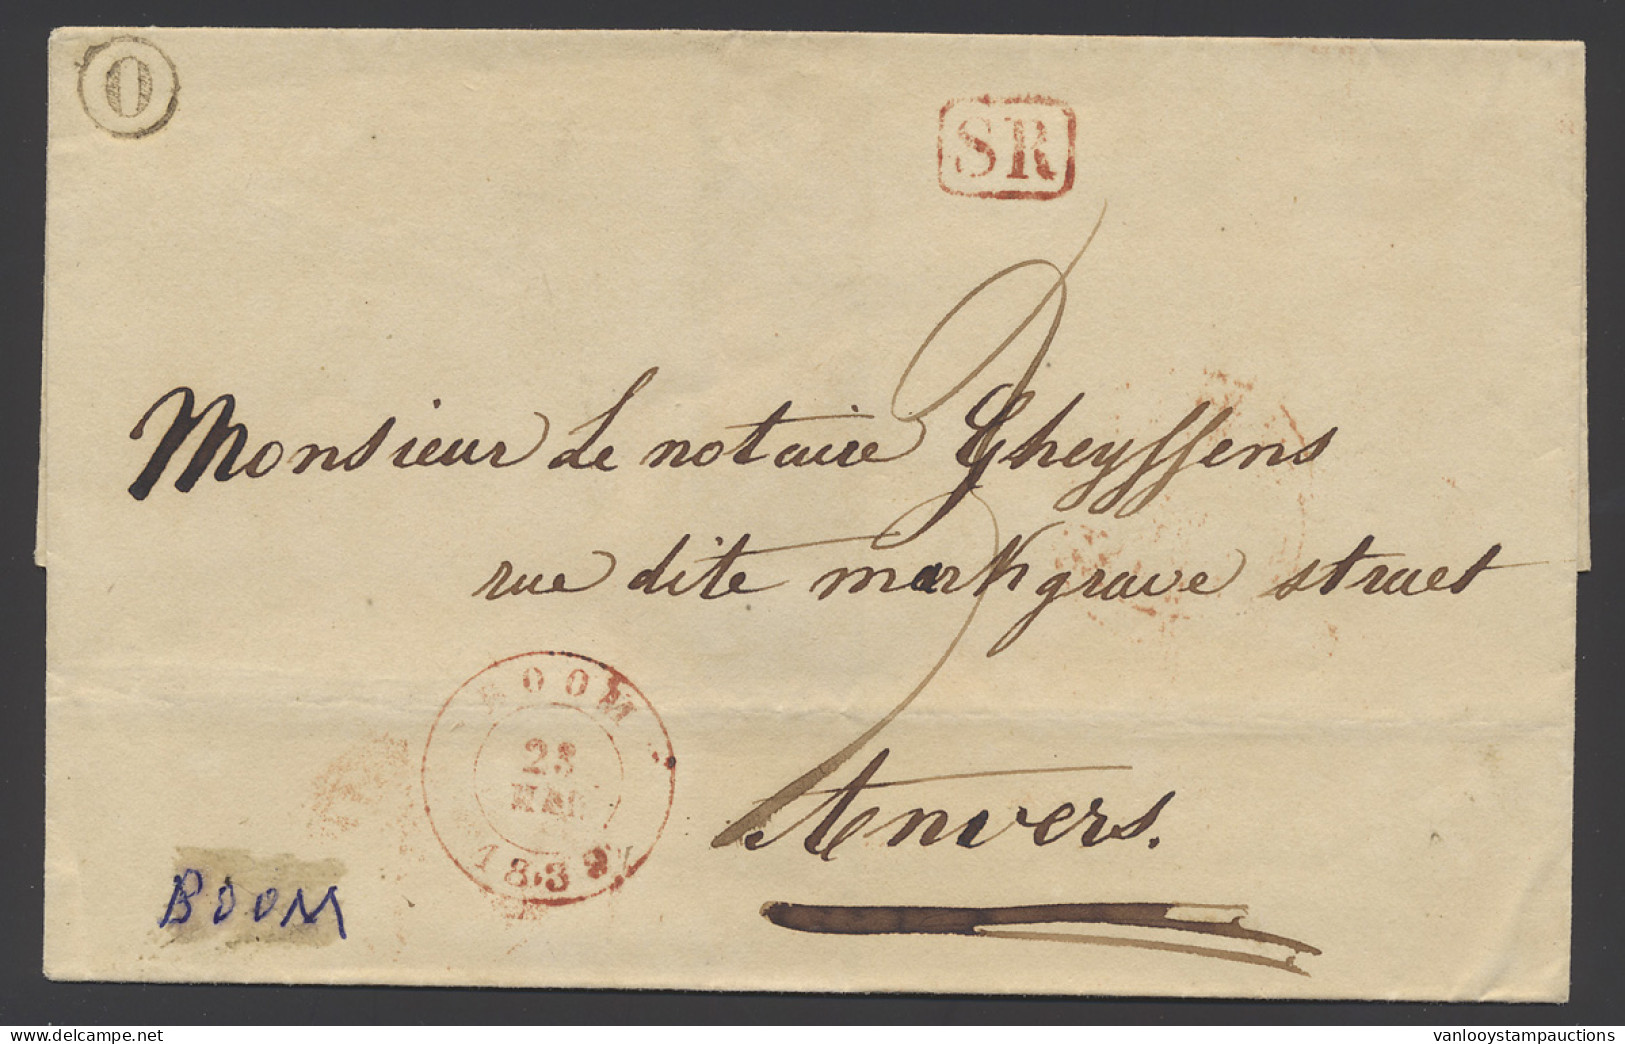 O
SR
Monsieur Le notaire Gheyssens
rue dite markgrave straet
Anvers.
BOOM
1839
BOOM
(c) delcampe.net
vanlooystampauctions